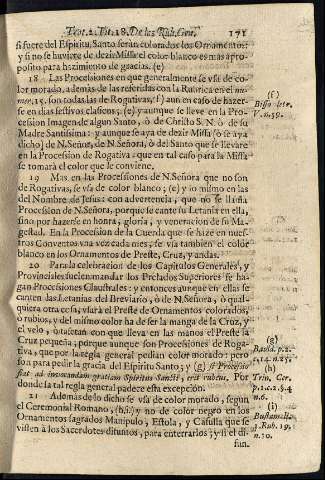 Trat. 2. Tit. 18. De las Rub. Gen. 171
si fuere del Espiritu Santo serán colorados los Ornamentos:
y si no se huviere de dezir Missa el color blanco es mas apro-
posito para hazimiento de gracias. (e)
18 Las Processiones en que generalmente se vsa de co-
lor morado, además de las referidas con la Rubrica en el nu-
mer. 15. son todas las de Rogativas, (f) aun en caso de hazer-
se en dias festivos clasicos; (e) y aunque se lleve en la Pro-
cession Imagen de algun Santo, ò de Christo S. N. ò de su
Madre Santissima: y aunque se aya de dezir Missa (ò se aya
dicho) de N. Señor, de N. Señora, ò del Santo que se llevare
en la Procession de Rogativa: que en tal caso para la Missa
se tomará el color que le conviene.
19 Mas en las Processiones de N. Señora que no son
de Rogativas, se vsa de color blanco; (e) y lo mismo en las
del Nombre de Jesus: con advertencia, que no se llama
Procession de N. Señora, porque se cante su Letania en ella,
sino por hazerse en honra, gloria, y veneracion de su Ma-
gestad. En la Procession de la Cuerda que se haze en nues-
tros Conventos vna vez cada mes, se vsa tambien el color
blanco en los Ornamentos de Preste, Cruz, y andas.
20 Para la celebracion de los Capitulos Generales, y
Provinciales suelen mandar los Prelados Superiores se ha-
gan Processiones Claustrales: y entonces aunque en ellas se
canten las Letanias del Breviario, ò de N. Señora, ò qual-
quiera otra cosa, vsará el Preste de Ornamentos colorados,
ò rubios, y del mismo color ha de ser la manga de la Cruz, y
el velo, ò tafetan con que lleva en las manos el Preste la
Cruz pequeña; porque aunque son Processiones de Roga-
tiva, que por la regla general pedian color morado; pero
son para pedir la gracia del Espiritu Santo; y (g) si Processio
fiat ad invocandam gratiam Spiritus Sancti, erit rubeus. Por
donde la tal regla general padece esta excepcion.
21 Además de lo dicho se vsa de color morado, segun
el Ceremonial Romano, (h.i.) y no de color negro en los
Ornamentos sagrados Manipulo, Estola, y Casulla que se
visten à los Sacerdotes difuntos, para enterrarlos; y si el di-
fun.
(f)
V. n. 39.
(g)
p. 2.
t. 4. n. 25.
(h)
Trin. Cer.
p. 2. c. 2. §. 4
n. 6.
(i)
Bustam. li.
3. Rub. 19.
n. 20.